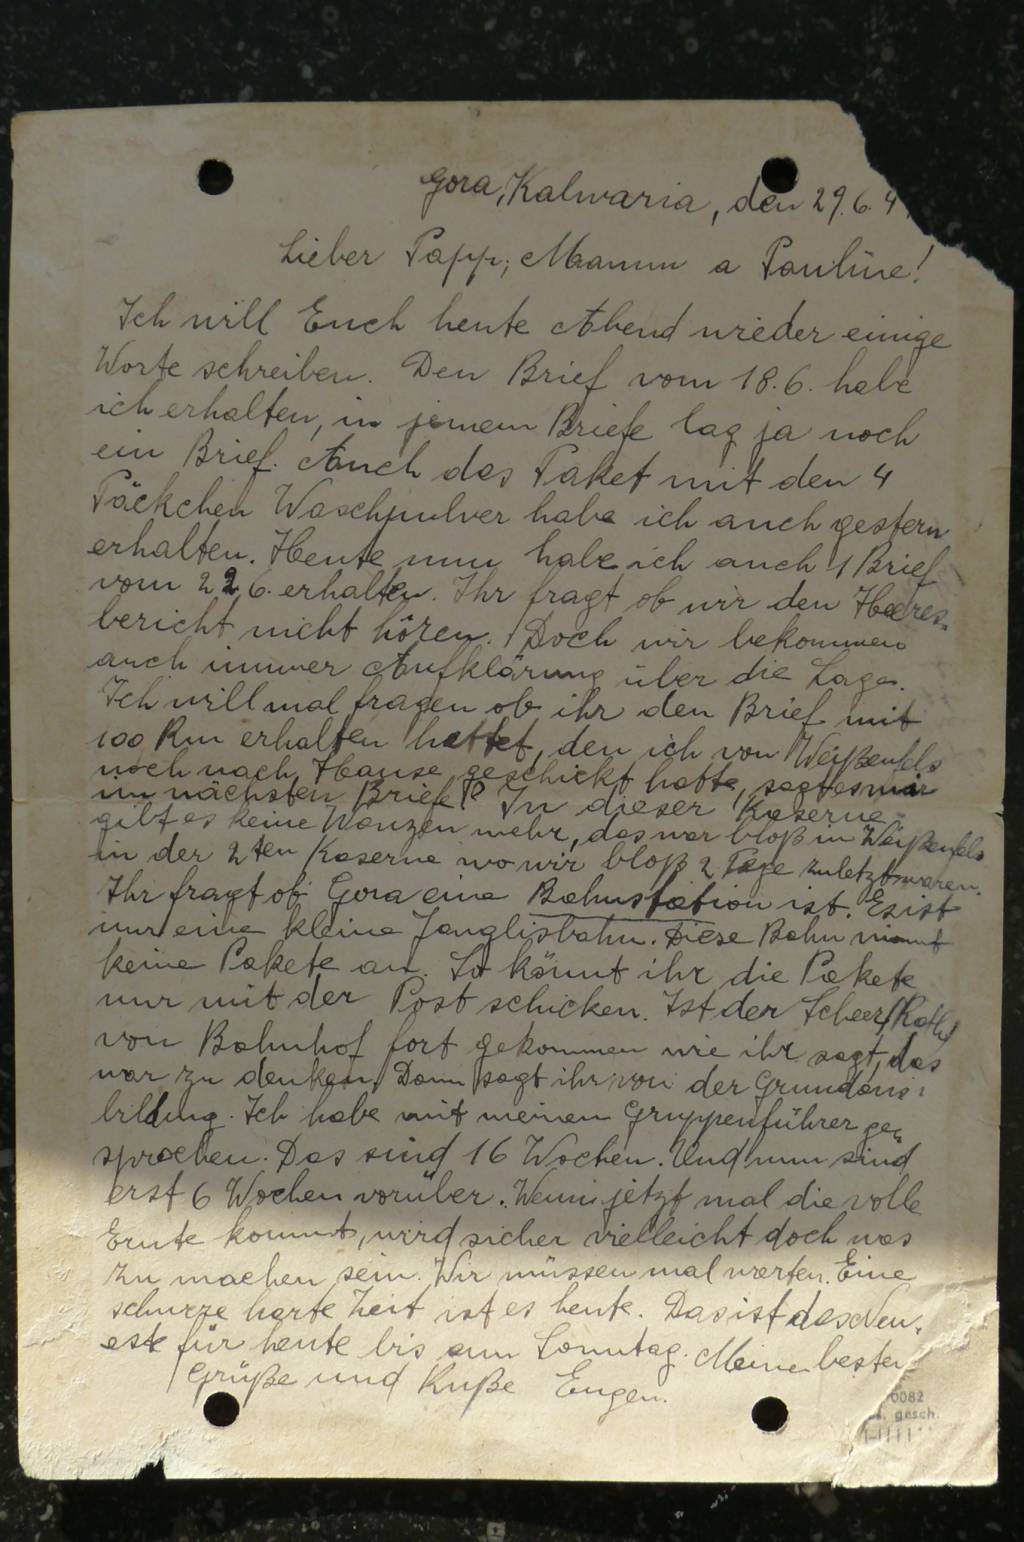 Gora, Kalwaria, den 29. 6. 4
Lieber Papp, Mamm a Pauline!
Ich will Euch heute Abend wieder einige
Worte schreiben. Den Brief vom 18. 6. habe
ich erhalten, in jenem Briefe lag ja noch
ein Brief. Auch das Paket mit den 4
Päckchen Waschpulver habe ich auch gestern
erhalten. Heute nun habe ich auch 1 Brief
vom 22. 6. erhalten. Ihr fragt ob wir den Heeres-
bericht nicht hören. Doch wir bekommen
auch immer Aufklärung über die Lage.
Ich will mal fragen ob ihr den Brief mit
100 Rm erhalten hattet, den ich von Weißenfels
noch nach Hause geschickt hatte, sagt es mir
im nächsten Briefe? In dieser Kaserne
gibt es keine Wanzen mehr, das war bloß in Weißenfels
in der 2ten Kaserne wo wir bloß 2 Tage zuletzt waren.
Ihr fragt ob Gora eine Bahnstation ist. Es ist
nur eine kleine Janglisbahn. Diese Bahn nimmt
keine Pakete an. So könnt ihr die Pakete
nur mit der Post schicken. Ist der Scheer
von Bahnhof fort gekommen wie ihr sagt, das
war zu denken. Dann sagt ihr von der Grundaus-
bildung. Ich habe mit meinen Gruppenführer ge-
sprochen. Das sind 16 Wochen. Und nun sind
erst 6 Wochen vorüber. Wenn jetzt mal die volle
Ernte kommt, wird sicher vielleicht doch was
zu machen sein. Wir müssen mal warten. Eine
schwere harte Zeit ist es heute. Das ist das Neu-
este für heute bis am Sonntag. Meine besten
Grüße und Küße Eugen.
0082
gesch.